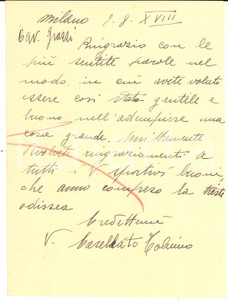 Milano 2.8.XVIII
Cav. Grassi
Ringrazio con le
più sentite parole nel
modo in cui avete voluto
essere così stato gentile e
buono nell'adempiere una
cosa grande. Umilmente
ringraziamenti a
tutti i V. sportivi buoni
che anno compreso la triste
odissea
Credettimi
V.